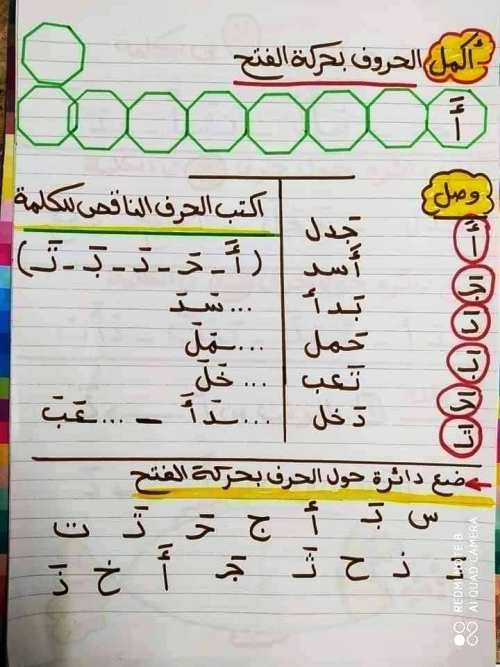 أكمل الحروف بحركة الفتح
أَ
وصل
اكتب الحرف الناقص للكلمة
أَ
جَدل
(أَ - حَـ - دَ - بَـ - تَـ)
أَسد
... سَدَ
بَدأ
... ـمَلَ
حَمل
... خَلَ
تَعب
... ـدَأَ – ... عَبَ
دَخل
ضع دائرة حول الحرف بحركة الفتح
س بَـ أَ ج حَـ ثَـ ت
ذ ح ثَـ جَـ أَ خ دَ
REDMI NOTE 8
AI QUAD CAMERA